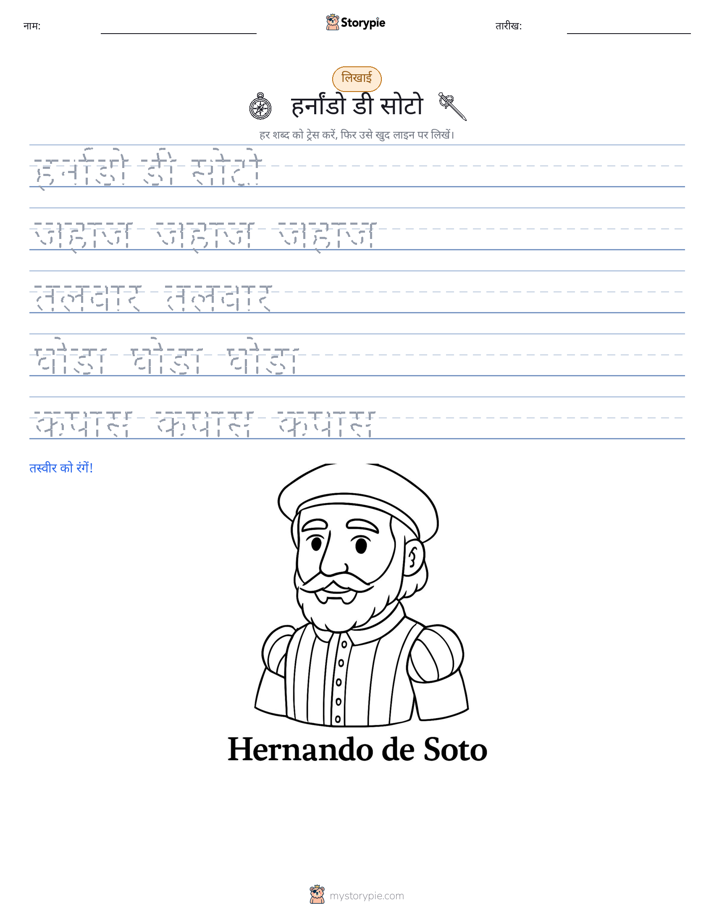 नाम:
Storypie
तारीख:
लिखाई
हर्नांडो डी सोटो
हर शब्द को ट्रेस करें, फिर उसे खुद लाइन पर लिखें।
हर्नांडो डी सोटो
जहाज जहाज जहाज
तलवार तलवार
घोडा घोडा घोडा
कपास कपास कपास
तस्वीर को रंगें!
Hernando de Soto
mystorypie.com